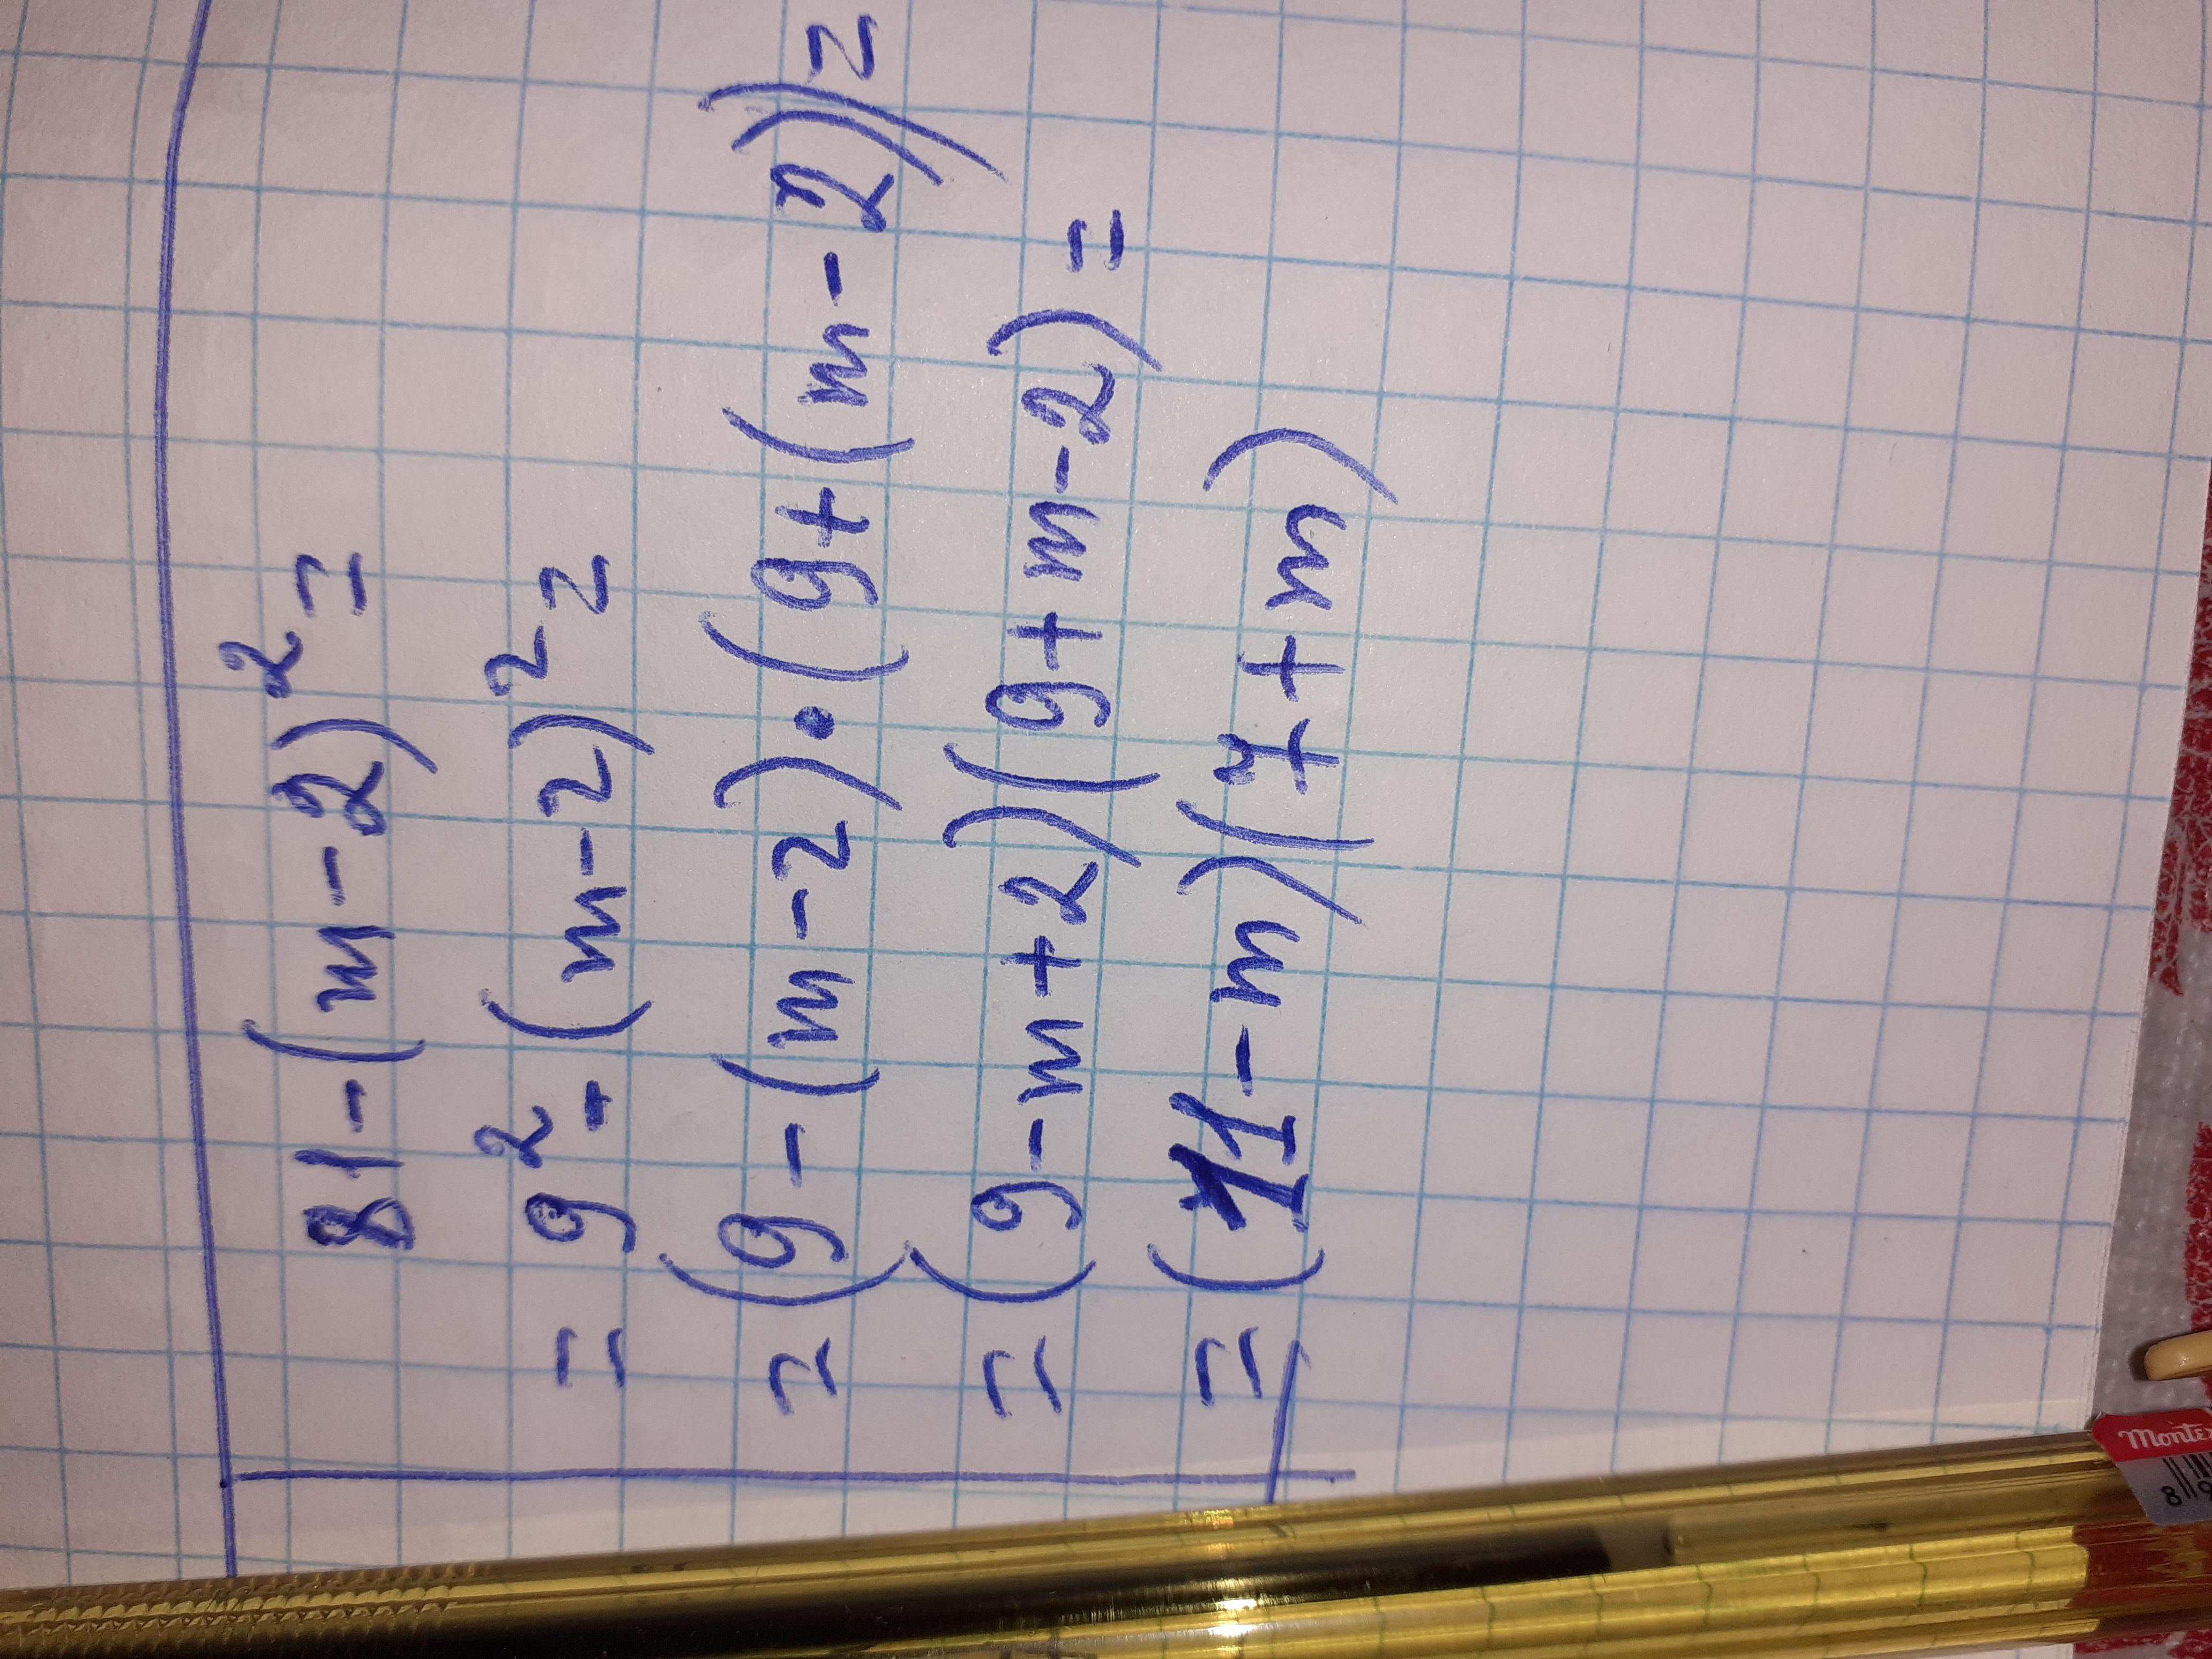 81-(m-2)²=
=9²-(m-2)²=
=(9-(m-2)·(9+(m-2))=
=(9-m+2)(9+m-2)=
=(11-m)(7+m)